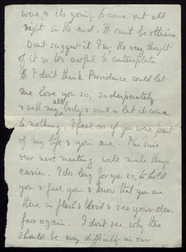 & it's going to come out all
right in the end. It can't be otherwise.
Don't suggest it I'm, the very thought
of it is too awful to contemplate.
I don't think Providence could let
me love you so, so desperately
& all my body & soul & let it come
to nothing. I feel as if you were part
of my life & you are. I'm sure
our next meeting will make things
easier. I do long for you so, to hold
you & feel you & know that you are
there in flesh & blood & see your dear
face again. I don't see why there
should be any difficulty in our